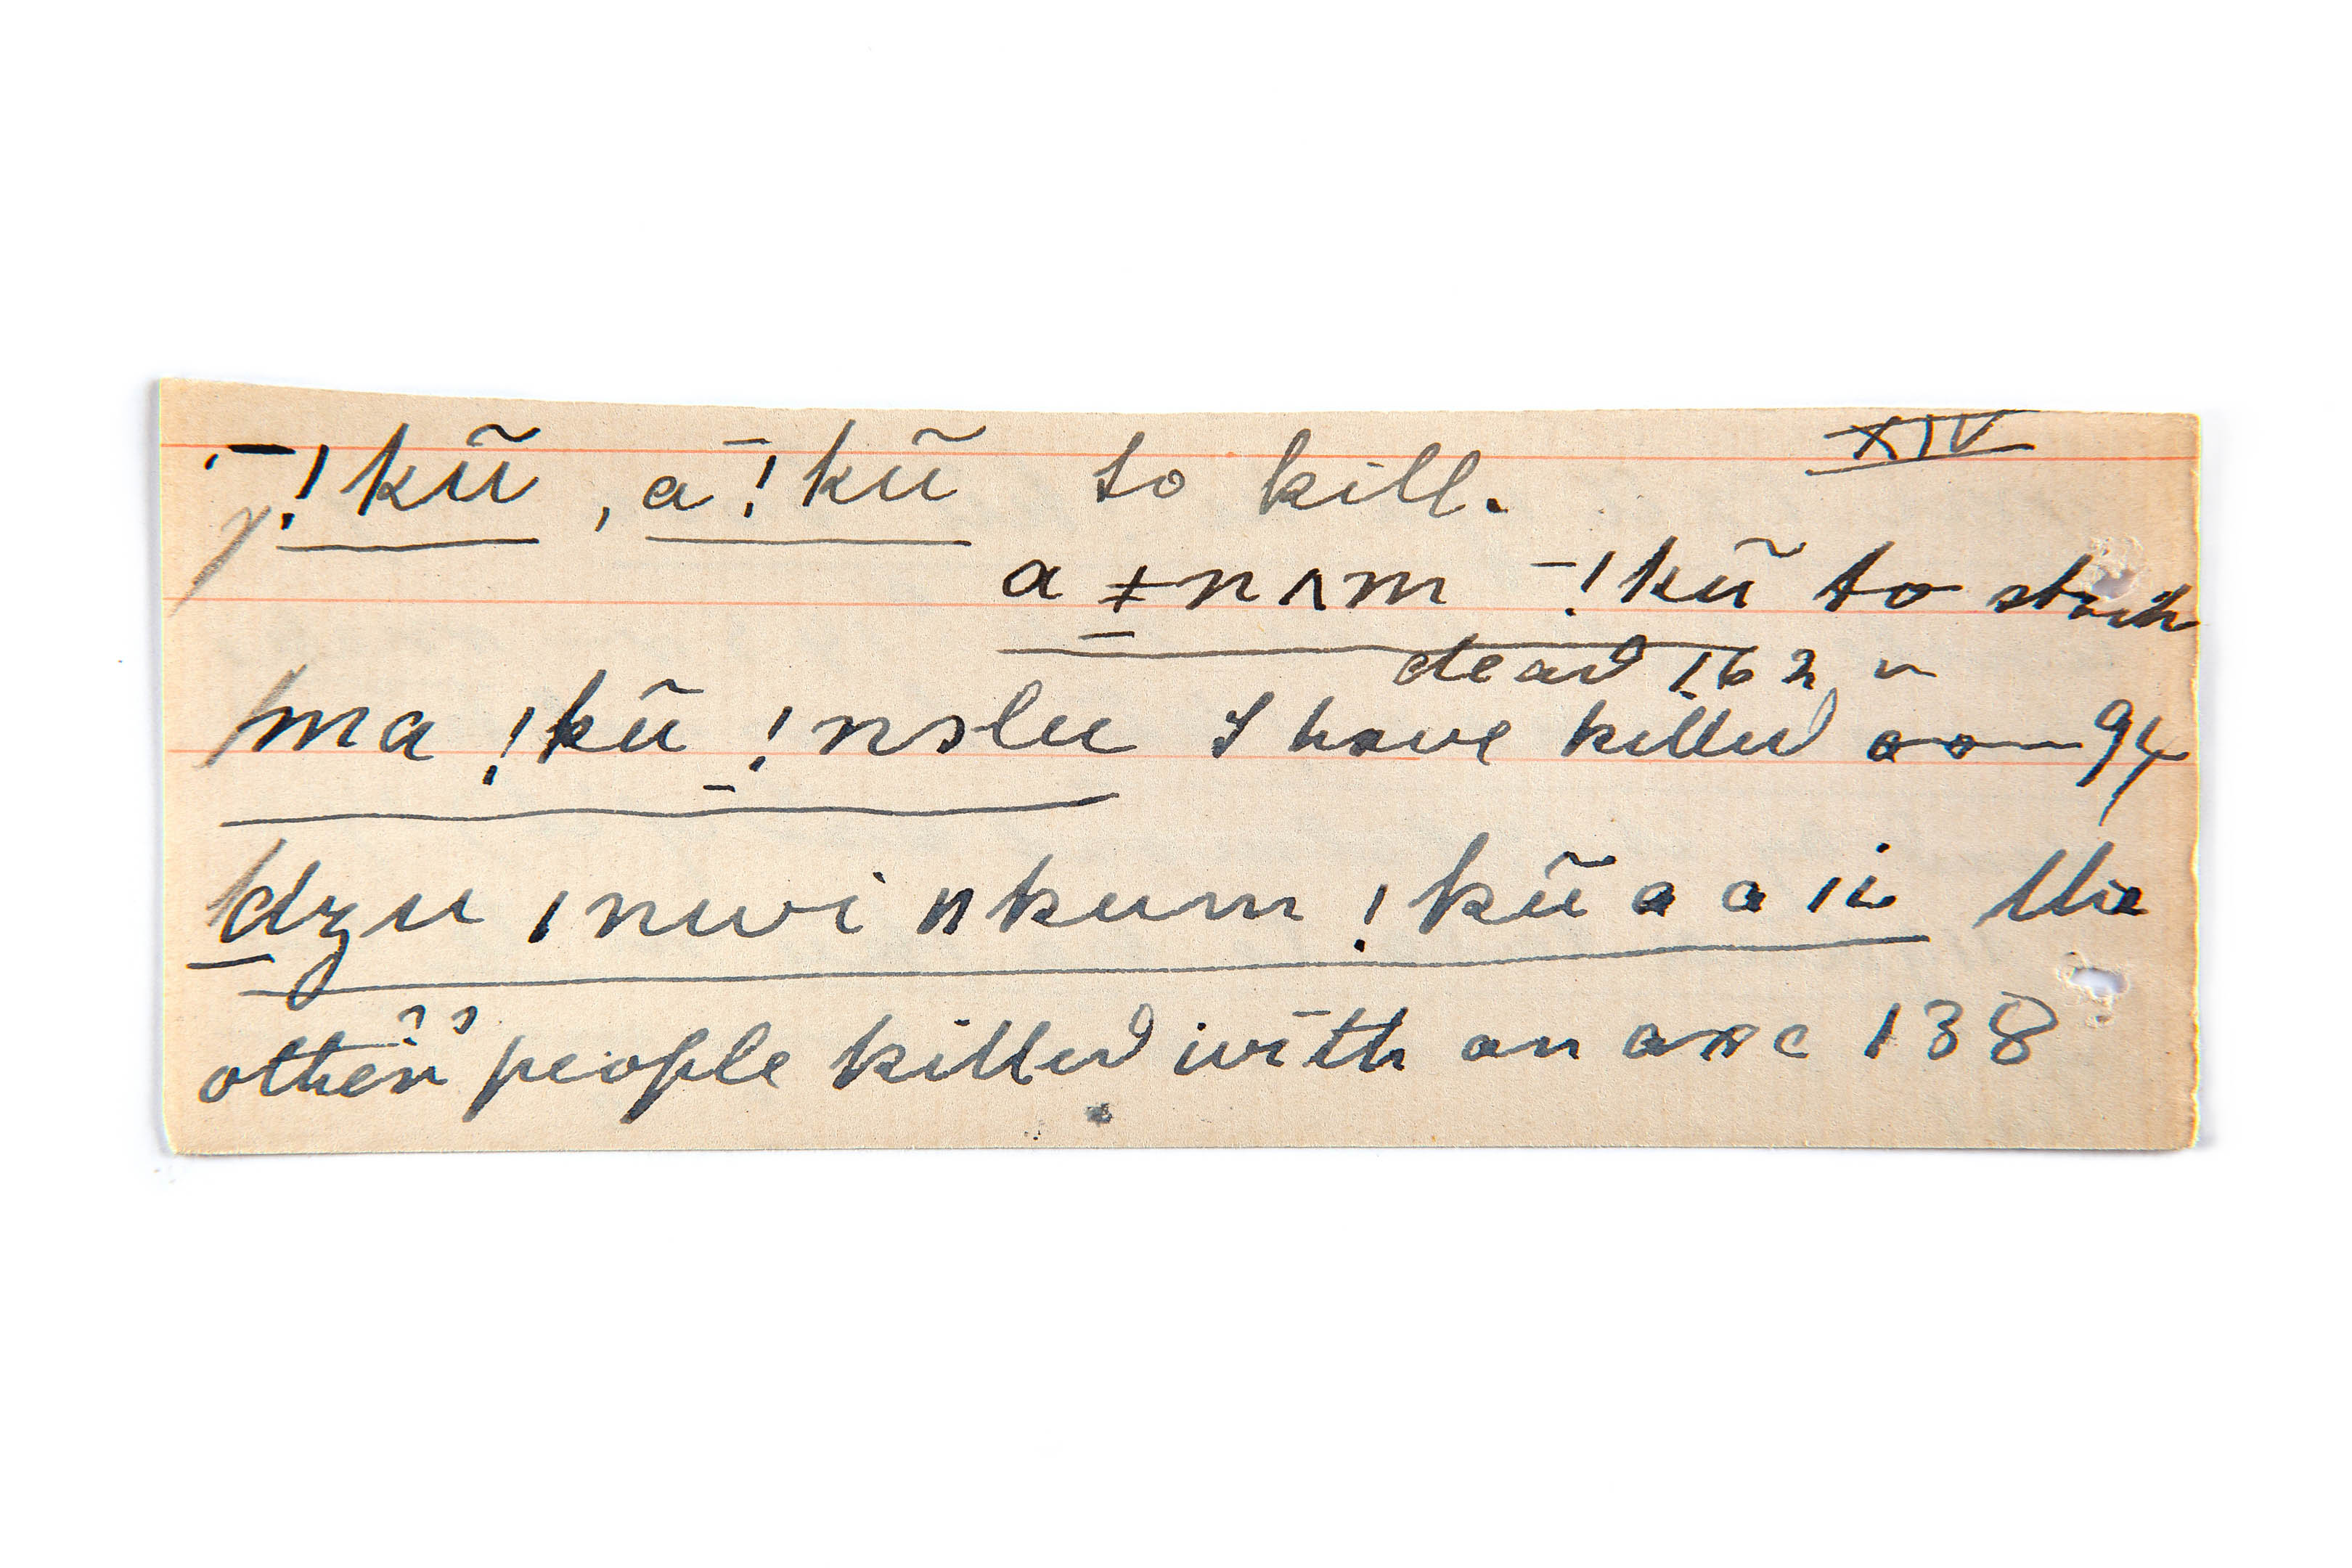 ¯!kũ, a¯!kũ to kill. XIV
a ǂnʌm ¯!kũ to strike
dead 162 v
ma !kũ _!nɔlu I have killed 94
dzu ǀnwi ǁkum !kũ a a ǀi the
other?? people killed with an axe 138